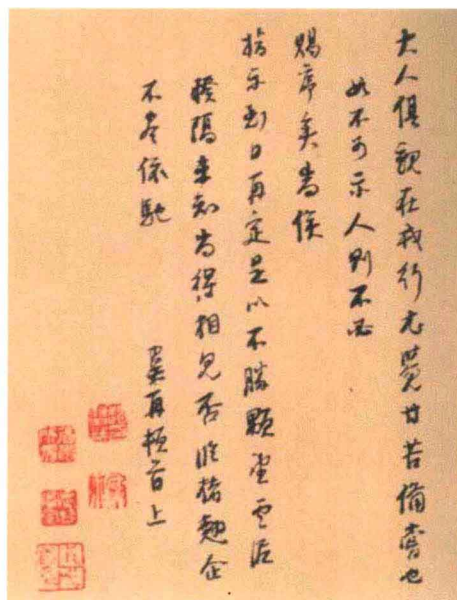 大人俱觀在我行尤覺甘苦備嘗也
如不可示人則不必
賜序矣尚候
指示到日再定是以不勝顒望雲泥
暌隔未知尚得相見否臨楮翹企
不盡依馳
再頓首上